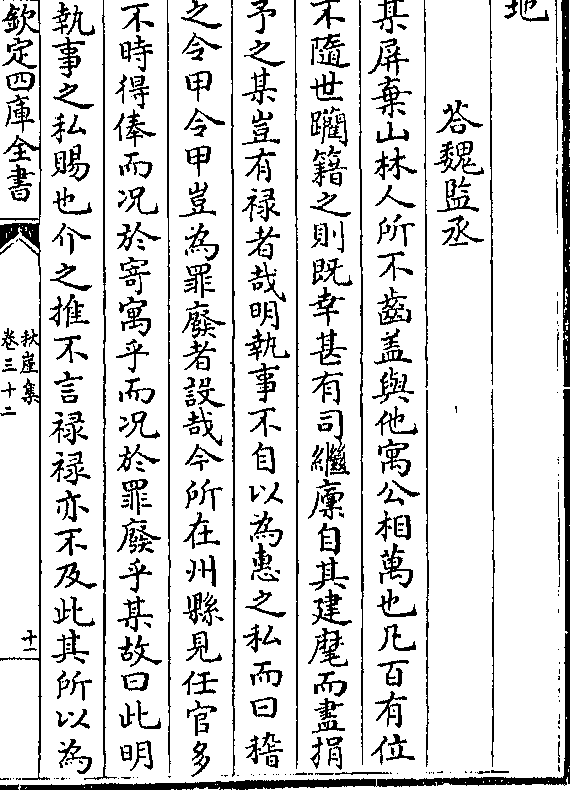 地
答魏監丞
某屏棄山林人所不齒盖與他寓公相萬也凡百有位
不隨世躪籍之則既幸甚有司繼廪自其建麾而盡捐
予之某豈有禄者哉明執事不自以為惠之私而曰稽
之令甲令甲豈為罪廢者設哉今所在州縣見任官多
不時得俸而况於寄寓乎而况於罪廢乎某故曰此明
執事之私賜也介之推不言禄禄亦不及此其所以為
欽定四庫全書
秋崖集
卷三十二
十一